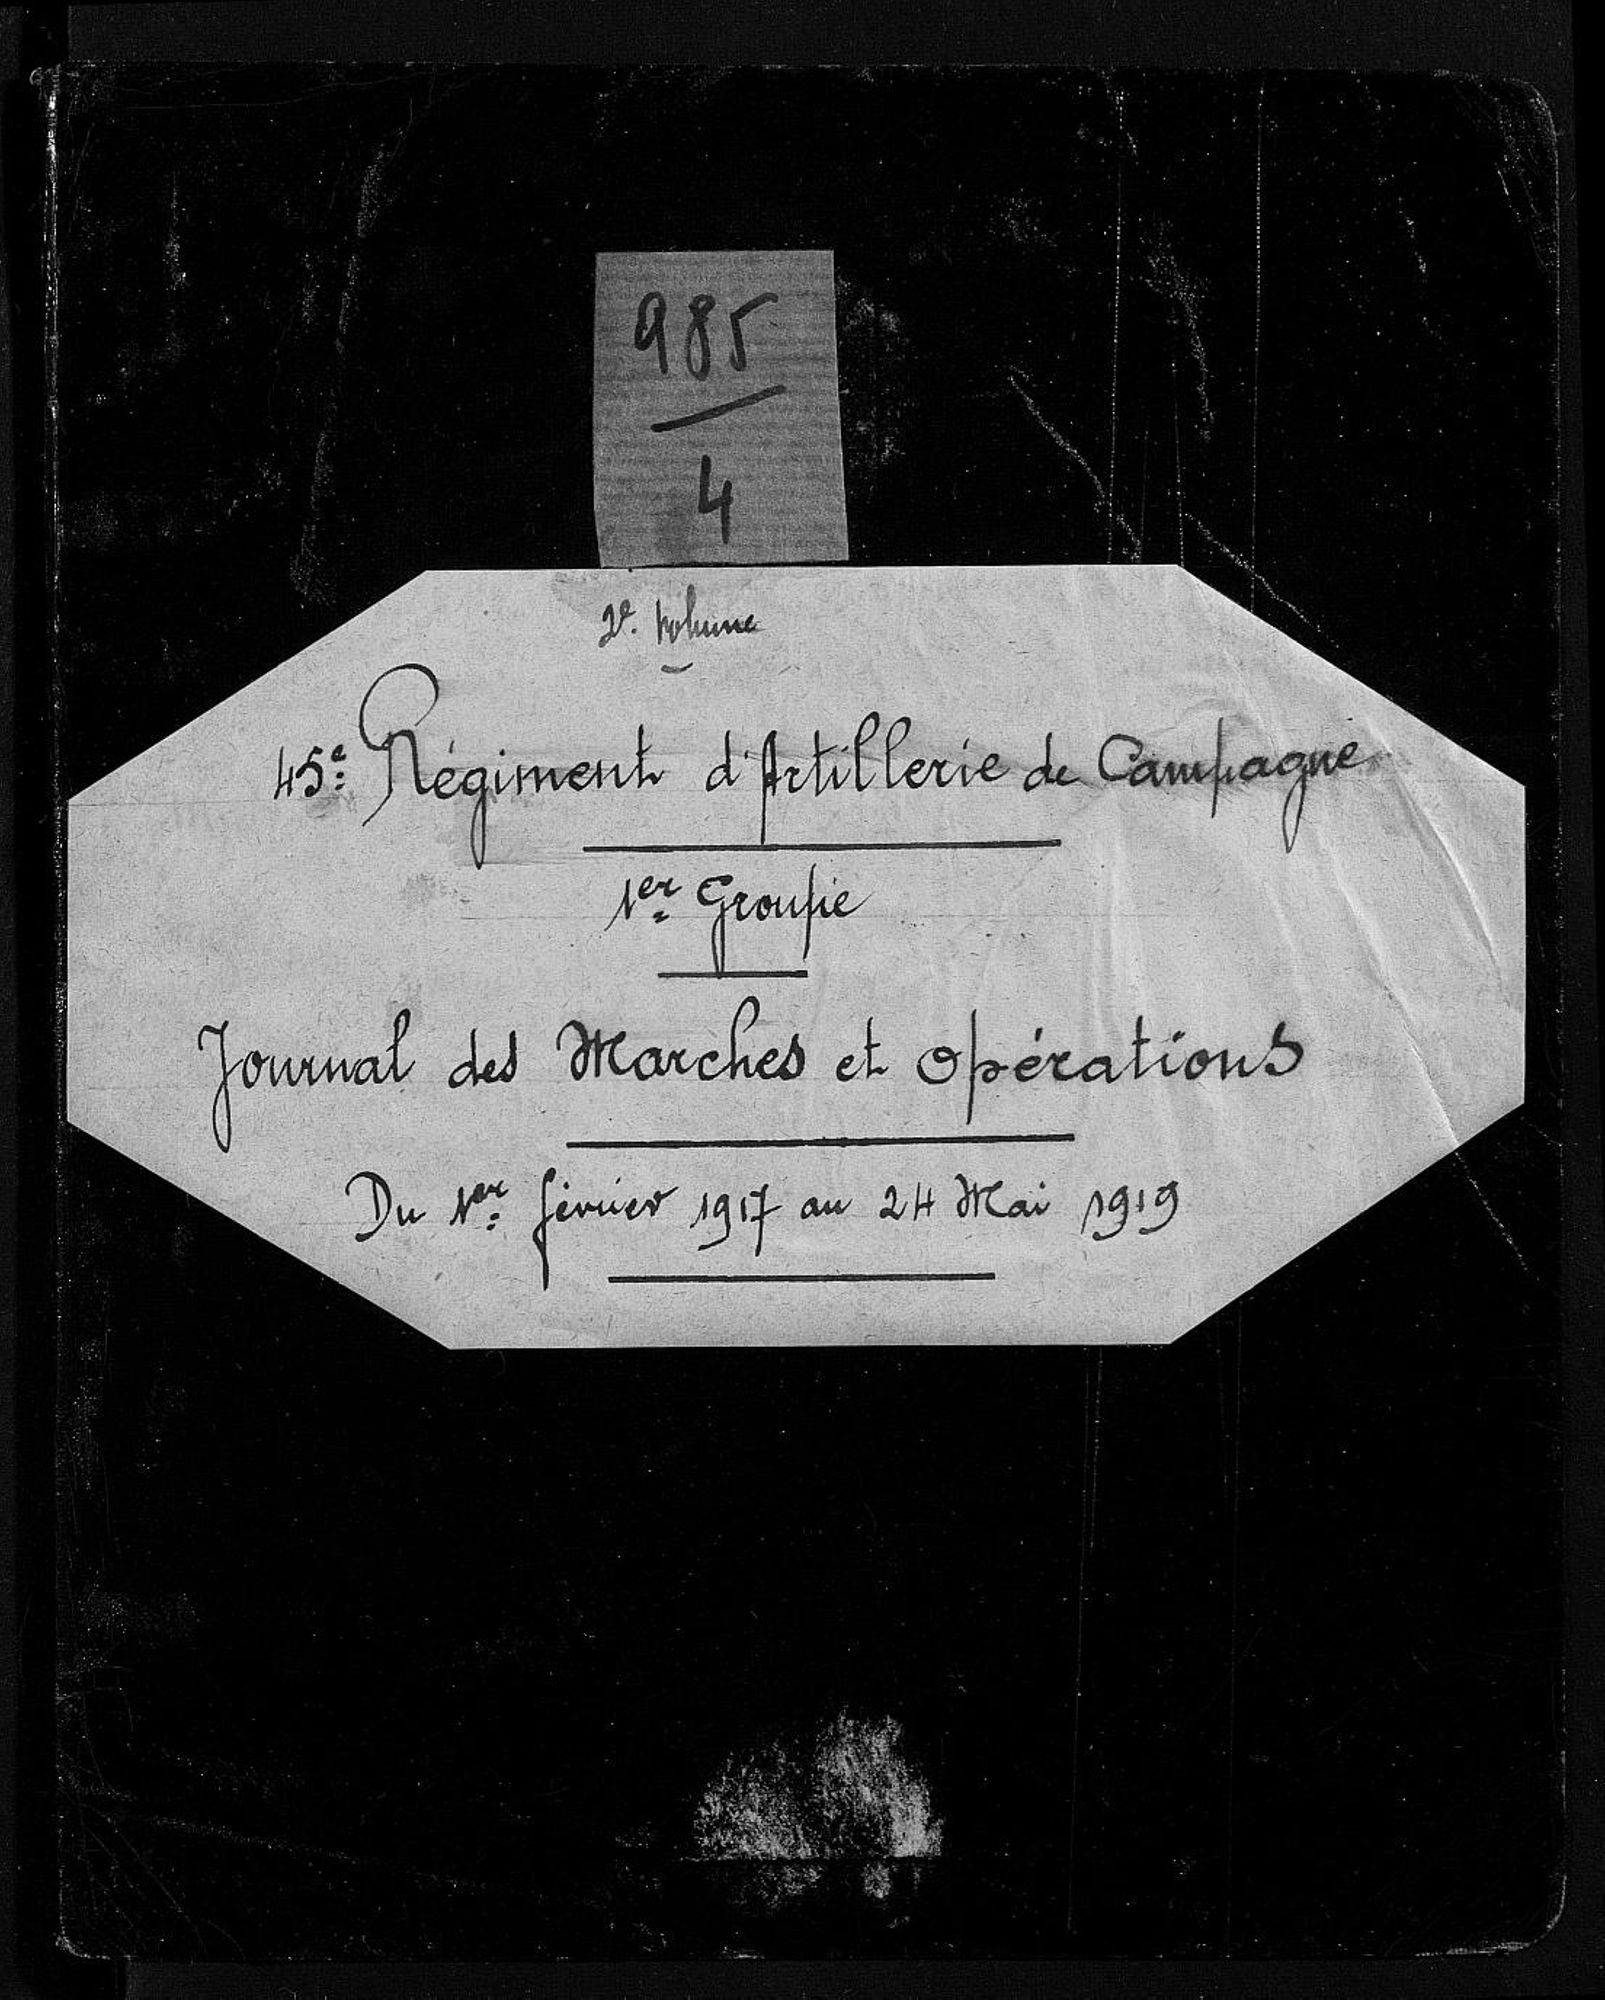 985
4
2e. Volume
45e Régiment d'Artillerie de Campagne
1er Groupe
Journal des Marches et Opérations
Du 1er février 1917 au 24 Mai 1919